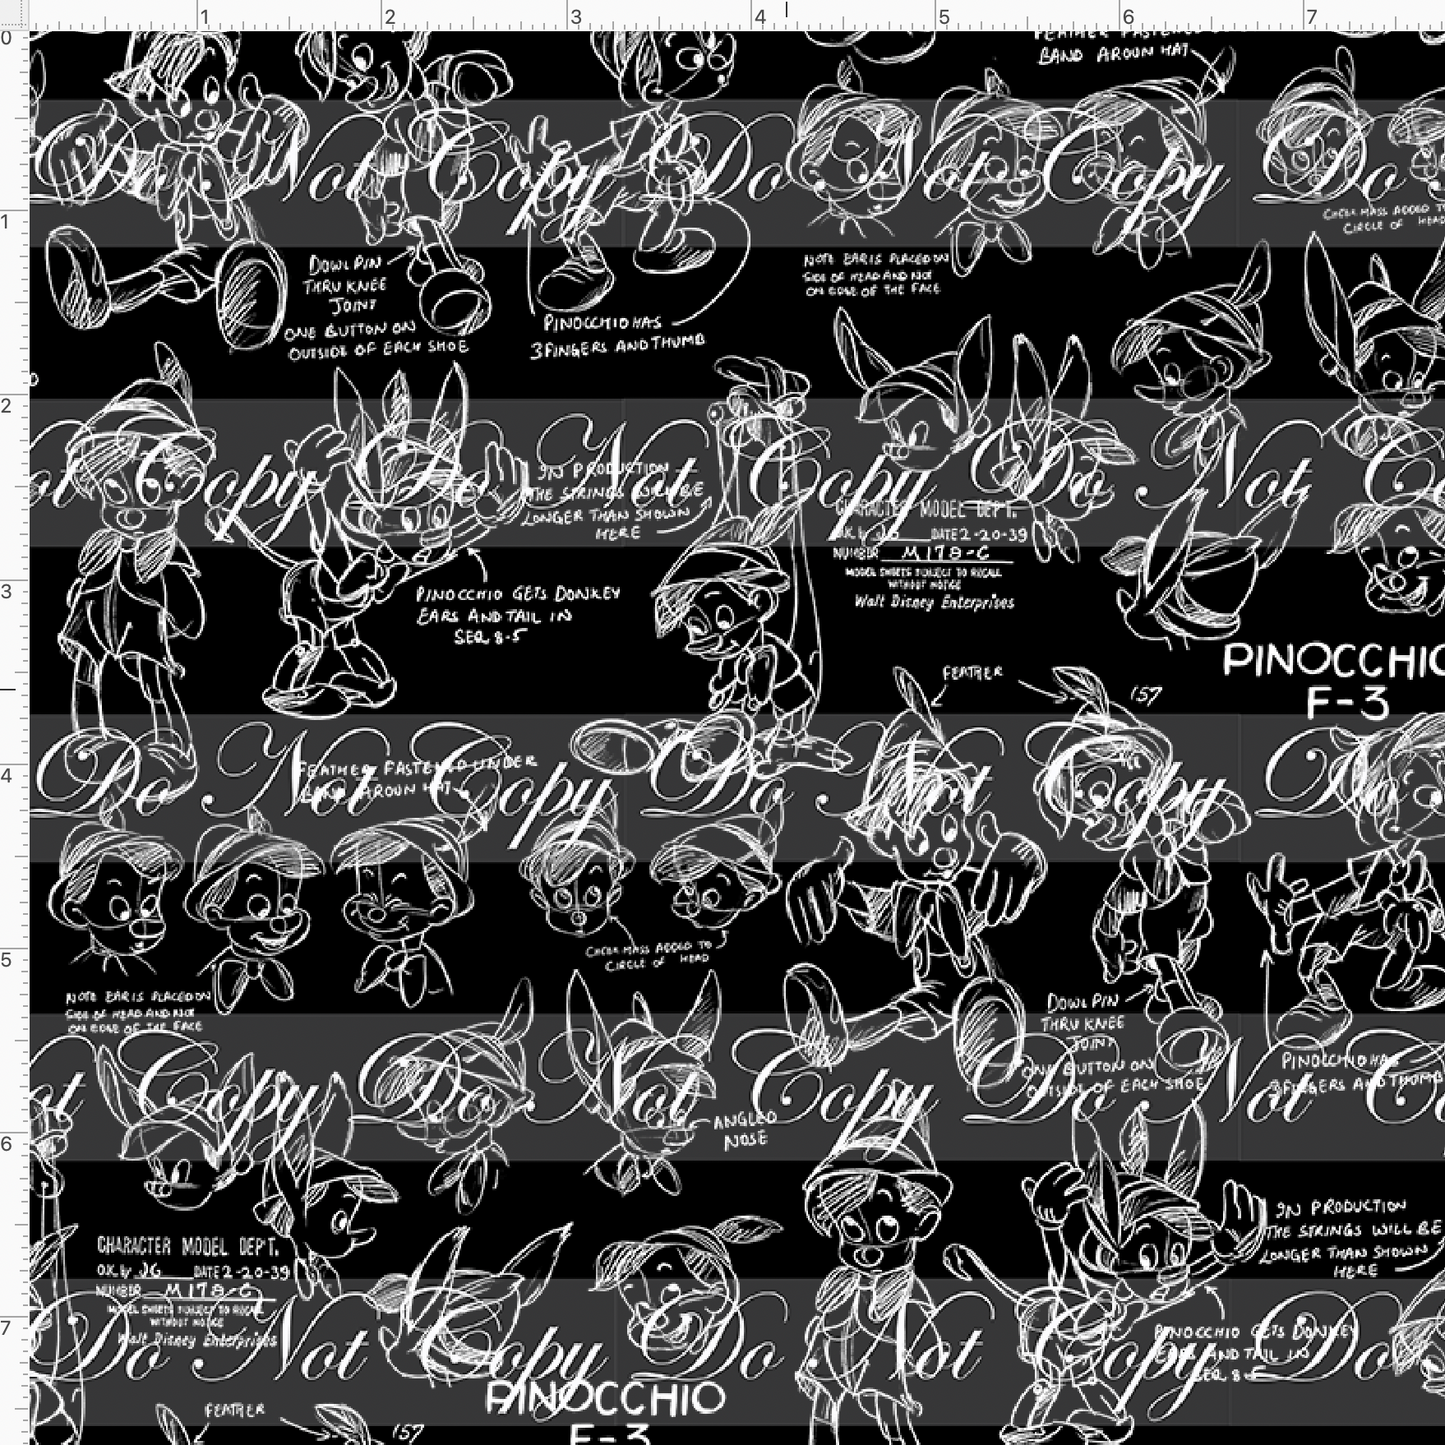 1 2 3 4 5 6 7
0
FEATHER FASTENED
BAND AROUN HAT
Do Not Copy Do Not Copy Do
1
CHEEK MASS ADDED TO
CIRCLE OF HEAD
DOWL PIN
THRU KNEE
JOINT
ONE BUTTON ON
OUTSIDE OF EACH SHOE
PINOCCHIO HAS
3 FINGERS AND THUMB
NOTE EAR IS PLACED ON
SIDE OF HEAD AND NOT
ON EDGE OF THE FACE
2
Not Copy Do Not Copy Do Not Co
IN PRODUCTION
THE STRINGS WILL BE
LONGER THAN SHOWN
HERE
CHARACTER MODEL DEPT.
O.K. by JG DATE 2-20-39
NUMBER M178-C
MODEL SHEETS SUBJECT TO RECALL
WITHOUT NOTICE
Walt Disney Enterprises
3
PINOCCHIO GETS DONKEY
EARS AND TAIL IN
SEQ 8-5
PINOCCHIO
F-3
FEATHER
157
4
Do Not Copy Do Not Copy Do
FEATHER FASTENED UNDER
BAND AROUN HAT
5
CHEEK MASS ADDED TO
CIRCLE OF HEAD
NOTE EAR IS PLACED ON
SIDE OF HEAD AND NOT
ON EDGE OF THE FACE
DOWL PIN
THRU KNEE
JOINT
ONE BUTTON ON
OUTSIDE OF EACH SHOE
PINOCCHIO HAS
3 FINGERS AND THUMB
Not Copy Do Not Copy Do Not Co
6
ANGLED
NOSE
IN PRODUCTION
THE STRINGS WILL BE
LONGER THAN SHOWN
HERE
CHARACTER MODEL DEPT.
O.K. by JG DATE 2-20-39
NUMBER M178-C
MODEL SHEETS SUBJECT TO RECALL
WITHOUT NOTICE
Walt Disney Enterprises
7
Do Not Copy Do Not Copy Do
PINOCCHIO GETS DONKEY
EARS AND TAIL IN
SEQ 8-5
PINOCCHIO
F-3
FEATHER
157